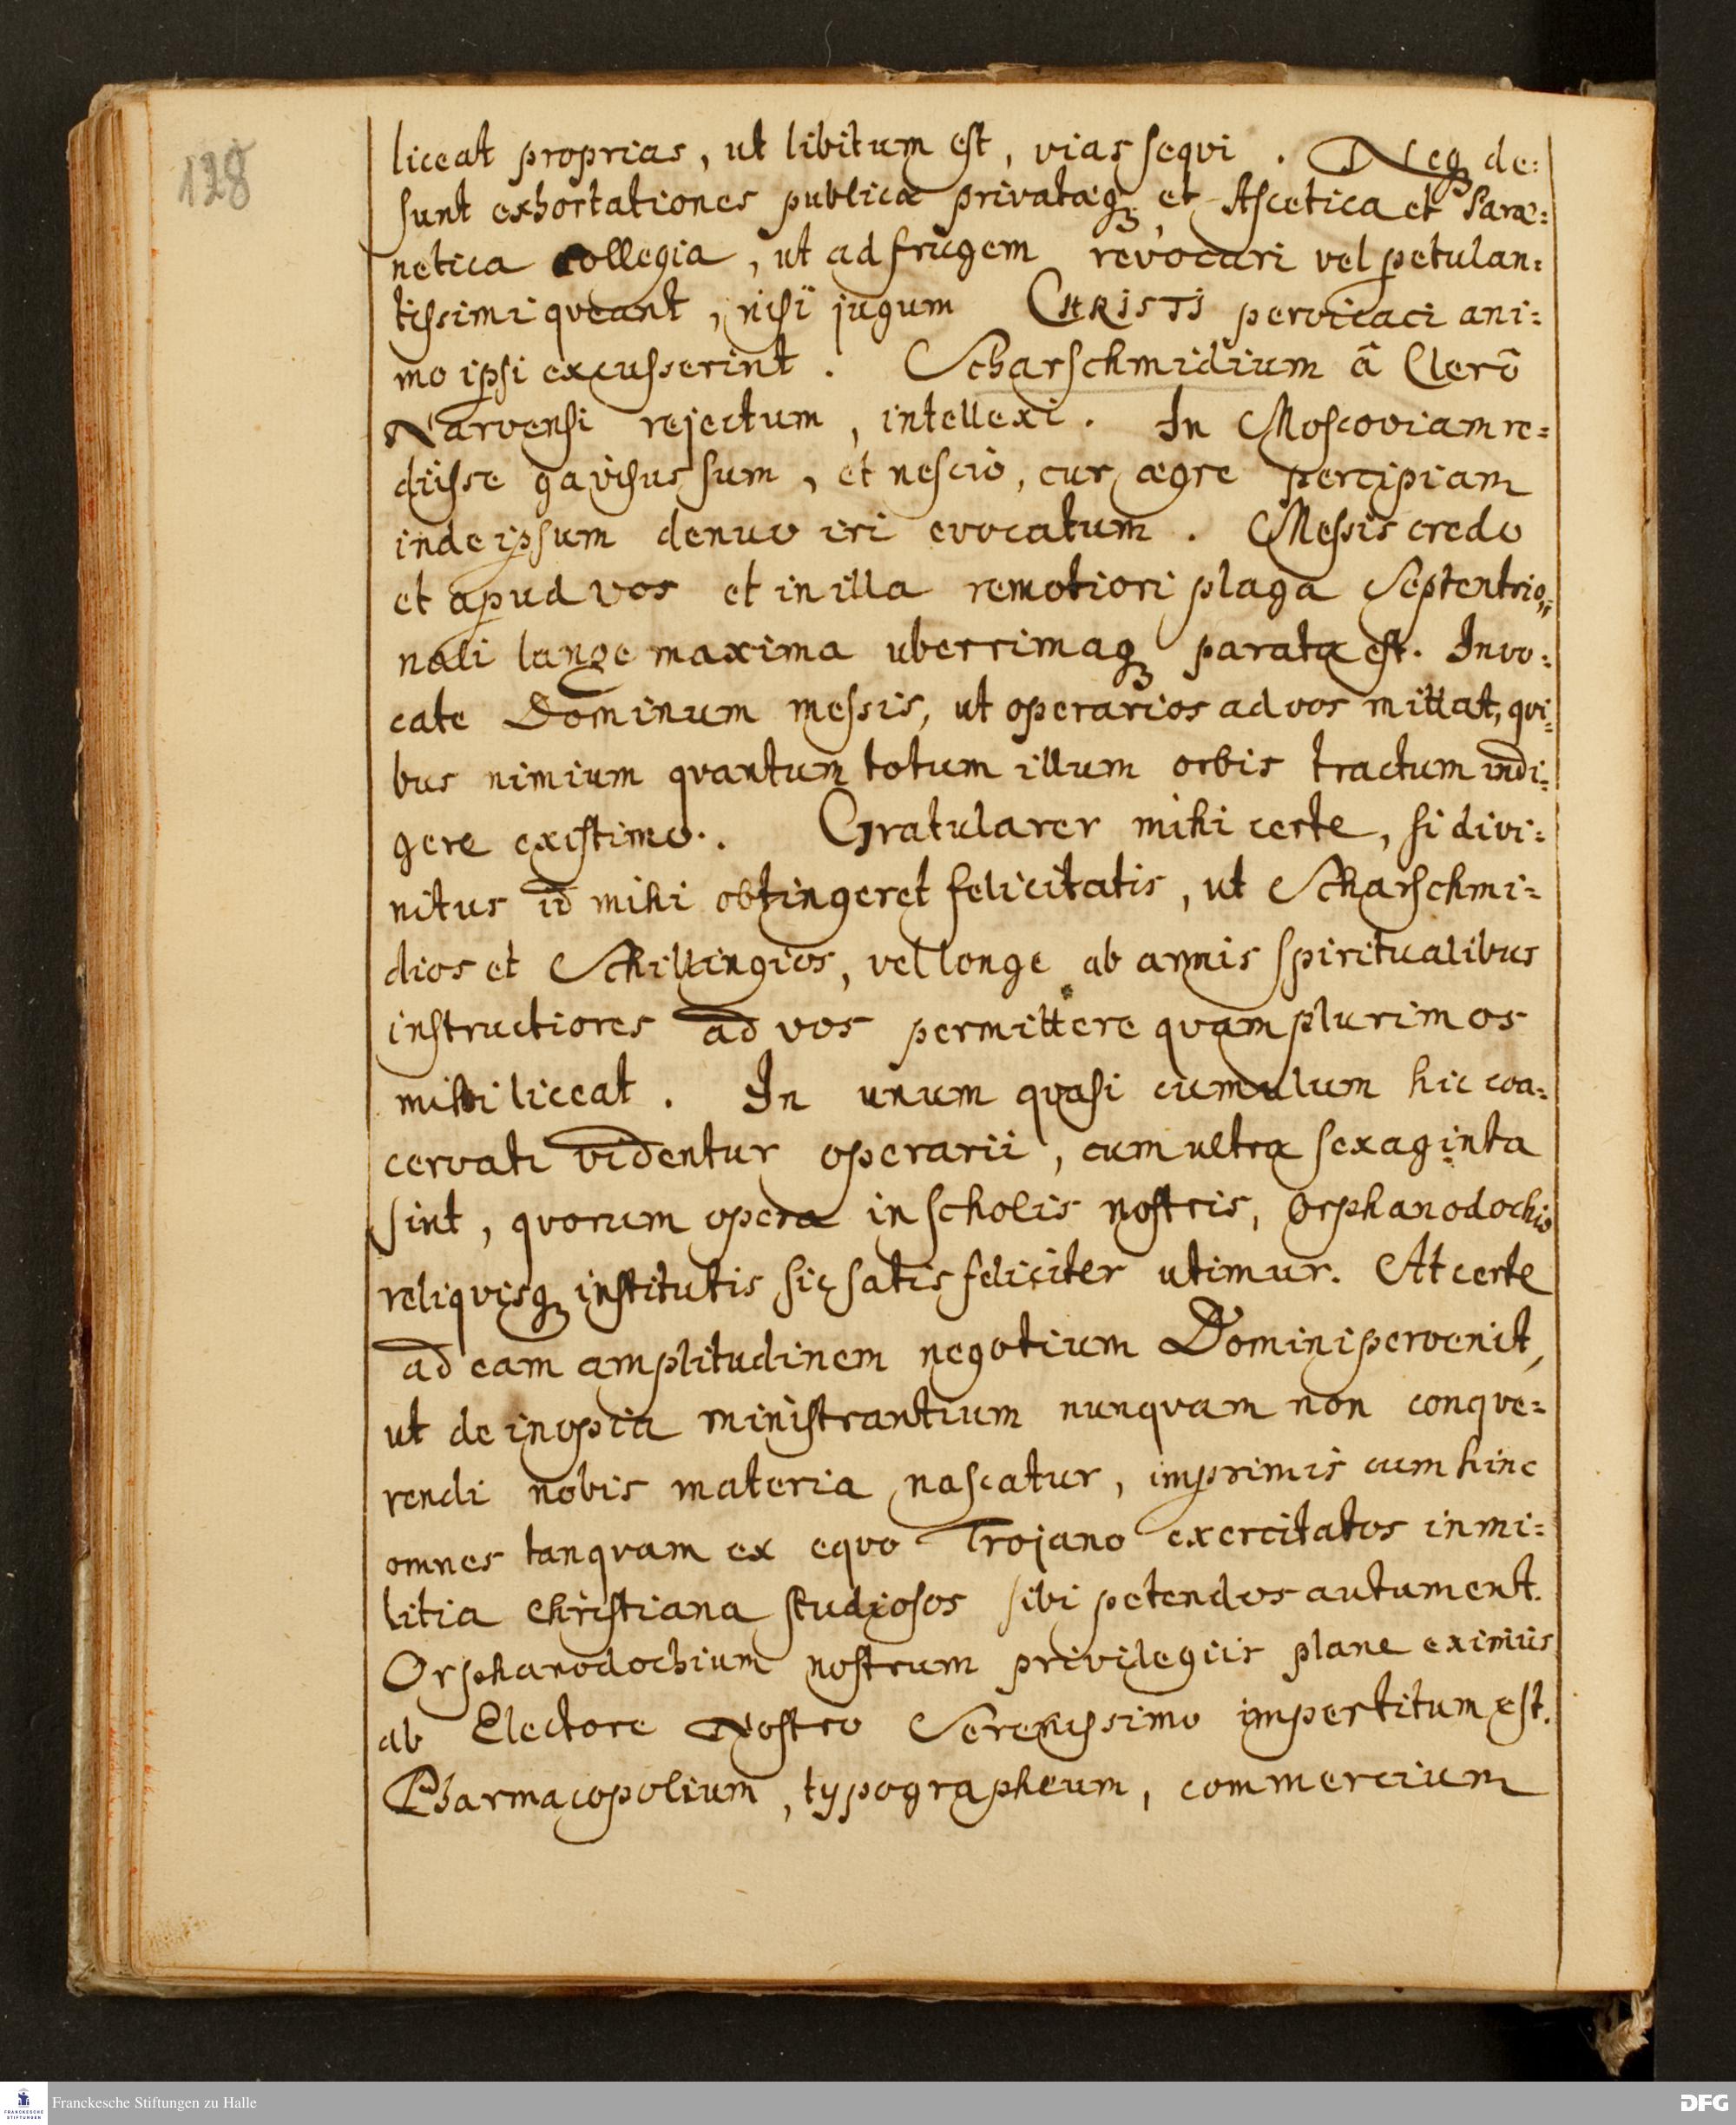 128
liceat proprias, ut libitum est, vias seqvi. Neqꝫ de=
sunt exhortationes publicæ privatæqꝫ, et Ascetica et Paræ=
netica collegia, ut ad frugem revocari vel petulan=
tissimi qveant, nisi jugum CHRISTI pervicaci ani=
mo ipsi excusserint. Scharschmidium â Clerô
Narvensi rejectum, intellexi. In Moscoviam re=
diisse gavisus sum, et nescio, cur ægre percipiam
inde ipsum denuo iri evocatum. Messis credo
et apud vos et in illa remotiori plaga Septentrio=
nali longe maxima uberrimaqꝫ parata est. Invo=
cate Dominum messis, ut operarios ad vos mittat, qvi=
bus nimium qvantum totum illum orbis tractum indi=
gere existimo. Gratularer mihi certe, si divi=
nitus id mihi obtingeret felicitatis, ut Scharschmi=
dios et Schillingios, vel longe ab armis spiritualibus
instructiores ad vos permittere qvam plurimos
mihi liceat. In unum qvasi cumulum hic coa=
cervati videntur operarii, cum ultra sexaginta
sint, qvorum opera in scholis nostris, Orphanodochio
reliqvisqꝫ institutis sic satis feliciter utimur. At certe
ad eam amplitudinem negotium Domini pervenit,
ut de inopia ministrantium nunqvam non conqve=
rendi nobis materia nascatur, imprimis cum hinc
omnes tanqvam ex eqvo Trojano exercitatos in mi=
litia christiana studiosos sibi petendos autument.
Orphanodochium nostrum privilegiis plane eximiis
ab Electore Nostro Serenissimo impertitum est.
Pharmacopolium, typographeum, commercium
Franckesche Stiftungen zu Halle
FRANCKESCHE
STIFTUNGEN
DFG